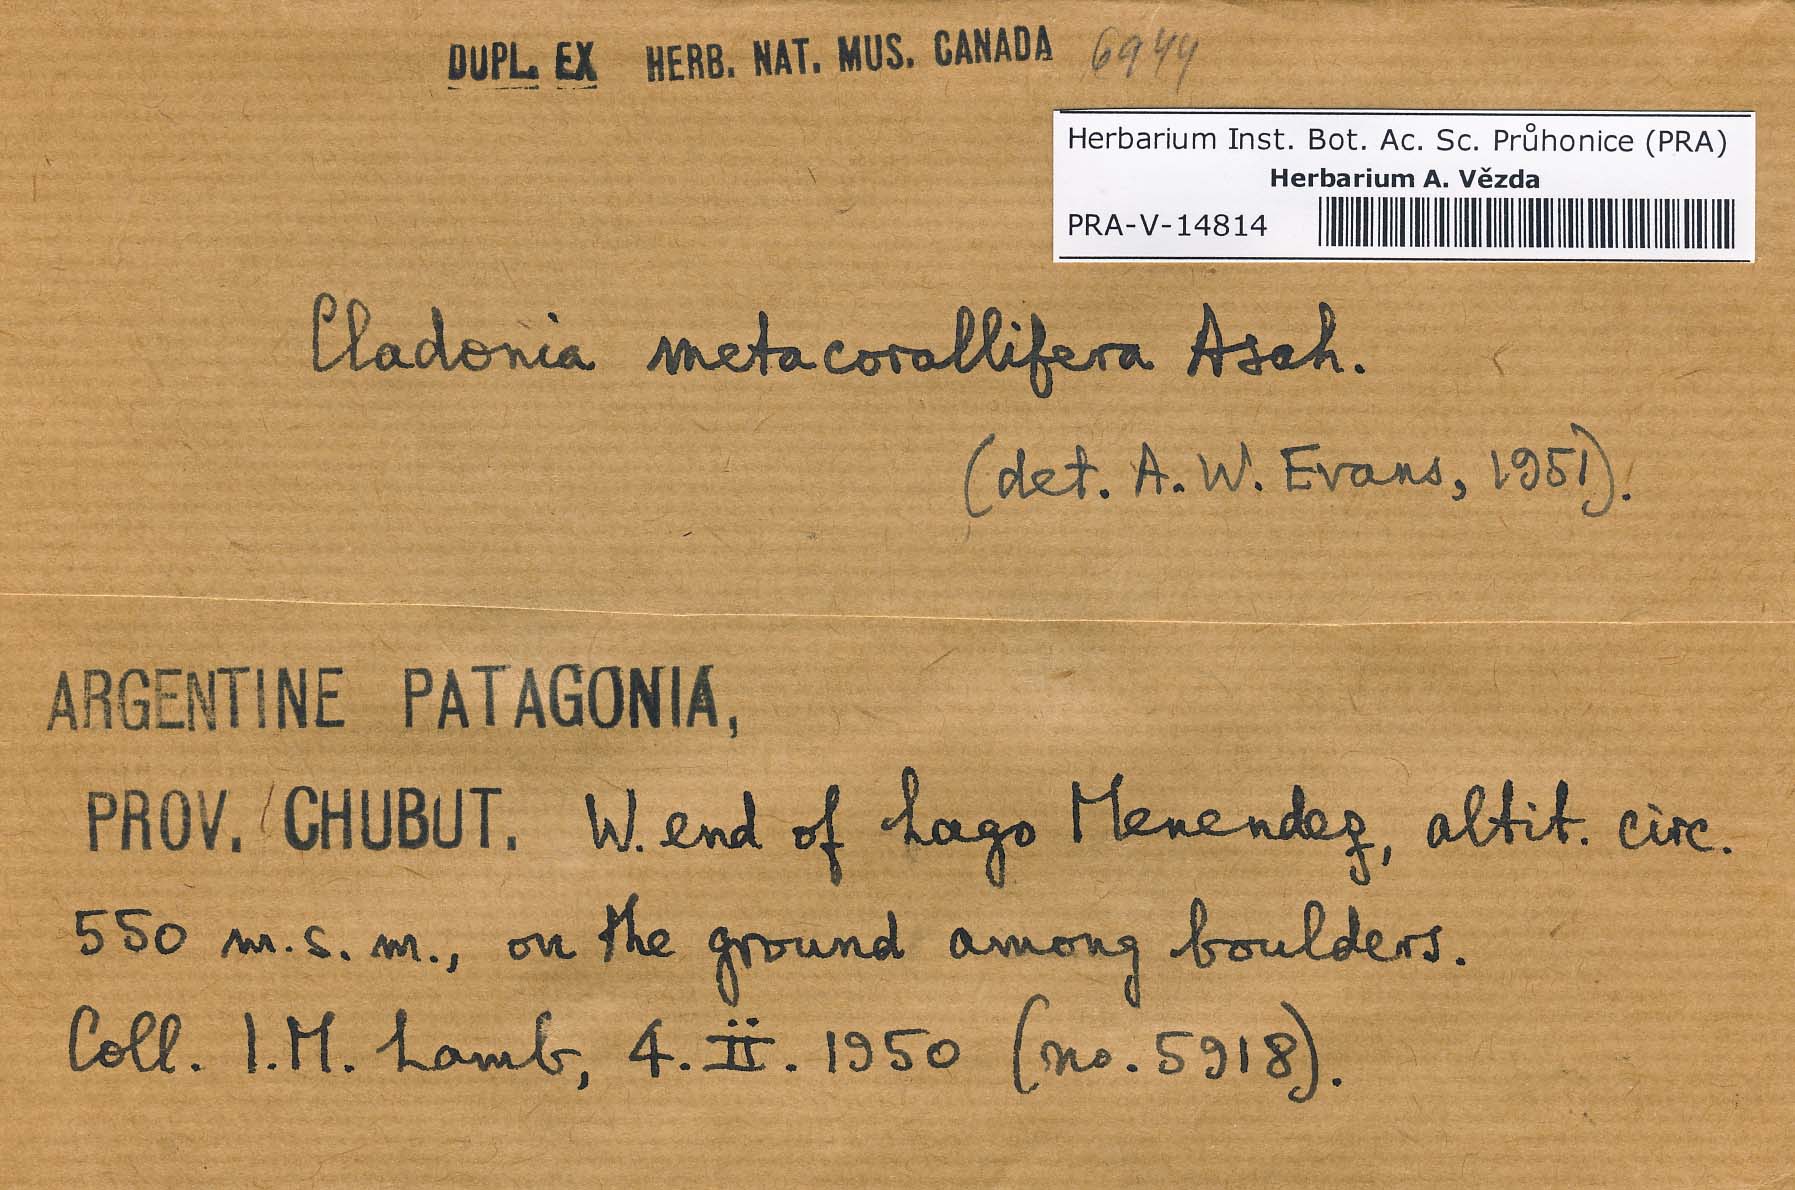 DUPL. EX HERB. NAT. MUS. CANADA 6944
Herbarium Inst. Bot. Ac. Sc. Průhonice (PRA)
Herbarium A. Vězda
PRA-V-14814
Cladonia metacorallifera Asah.
(det. A. W. Evans, 1951).
ARGENTINE PATAGONIA,
PROV. CHUBUT. W. end of Lago Menendez, altit. circ.
550 m. s. m., on the ground among boulders.
Coll. I. M. Lamb, 4. II. 1950 (no. 5918).